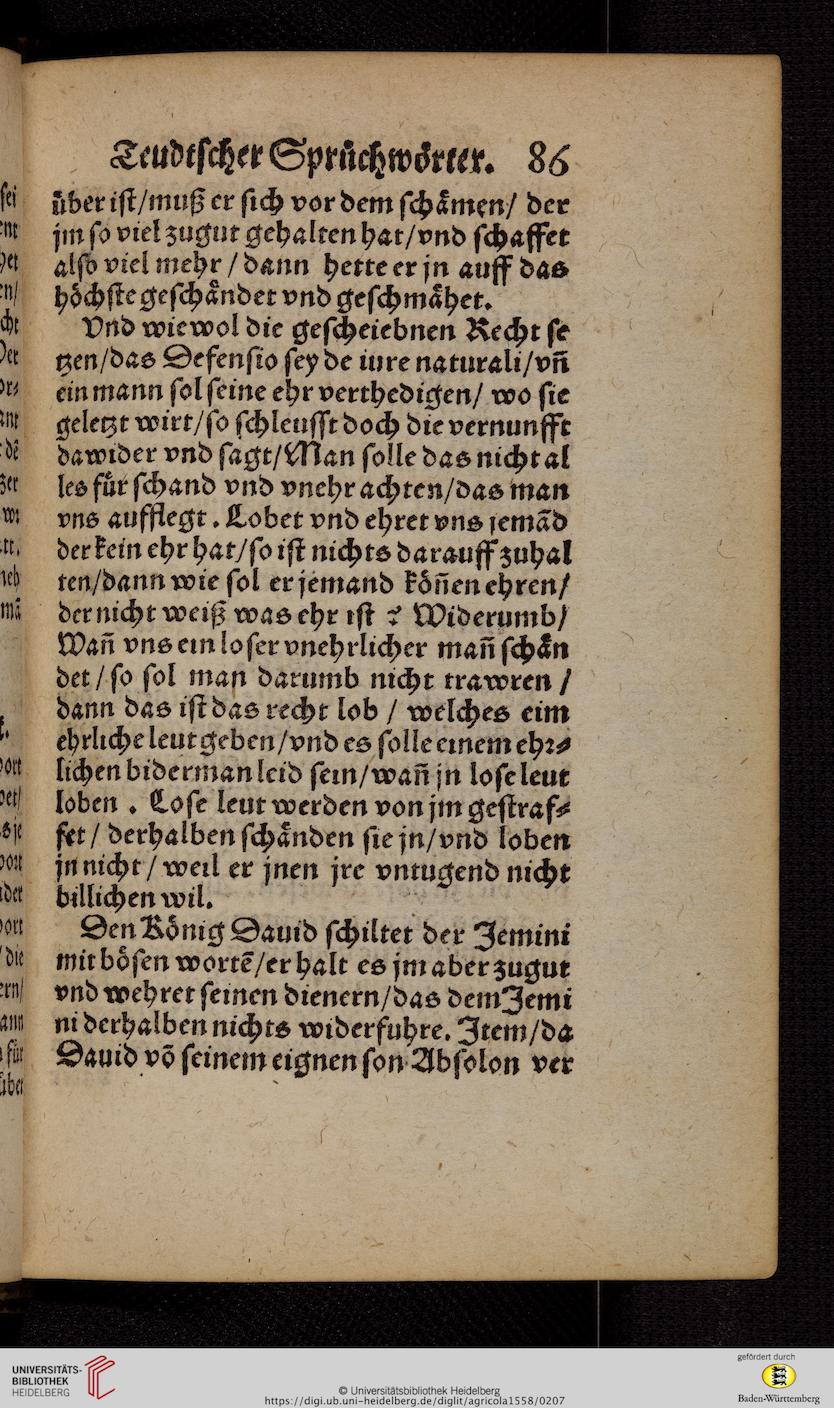 Teudtſcher Sprüchwörter. 86
über iſt/muß er ſich vor dem ſchämen/ der
jm ſo viel zugut gehalten hat/vnd ſchaffet
alſo viel mehr / dann hette er jn auff das
höchſte geſchändet vnd geſchmähet.
Vnd wiewol die geſcheiebnen Recht ſe
tzen/das Defenſio ſey de iure naturali/vn̄
ein mann ſol ſeine ehr verthedigen/ wo ſie
geletzt wirt/ſo ſchleuſſt doch die vernunfft
dawider vnd ſagt/Man ſolle das nicht al
les für ſchand vnd vnehr achten/das man
vns aufflegt. Lobet vnd ehret vns jemãd
der kein ehr hat/ſo iſt nichts darauff zuhal
ten/dann wie ſol er jemand kön̄en ehren/
der nicht weiß was ehr iſt ? Widerumb/
Wan̄ vns ein loſer vnehrlicher man̄ ſchän
det / ſo ſol man darumb nicht trawren /
dann das iſt das recht lob / welches eim
ehrliche leut geben/vnd es ſolle einem ehꝛ⸗
lichen biderman leid ſein/wan̄ jn loſe leut
loben . Loſe leut werden von jm geſtraf⸗
fet / derhalben ſchänden ſie jn/vnd loben
jn nicht / weil er jnen jre vntugend nicht
billichen wil.
Den König Dauid ſchiltet der Jemini
mit böſen wortẽ/er halt es jm aber zugut
vnd wehret ſeinen dienern/das dem Jemi
ni derhalben nichts widerfuhre. Item/da
Dauid võ ſeinem eignen ſon Abſolon ver
UNIVERSITÄTS-
BIBLIOTHEK
HEIDELBERG
© Universitätsbibliothek Heidelberg
https://digi.ub.uni-heidelberg.de/diglit/agricola1558/0207
gefördert durch
Baden-Württemberg